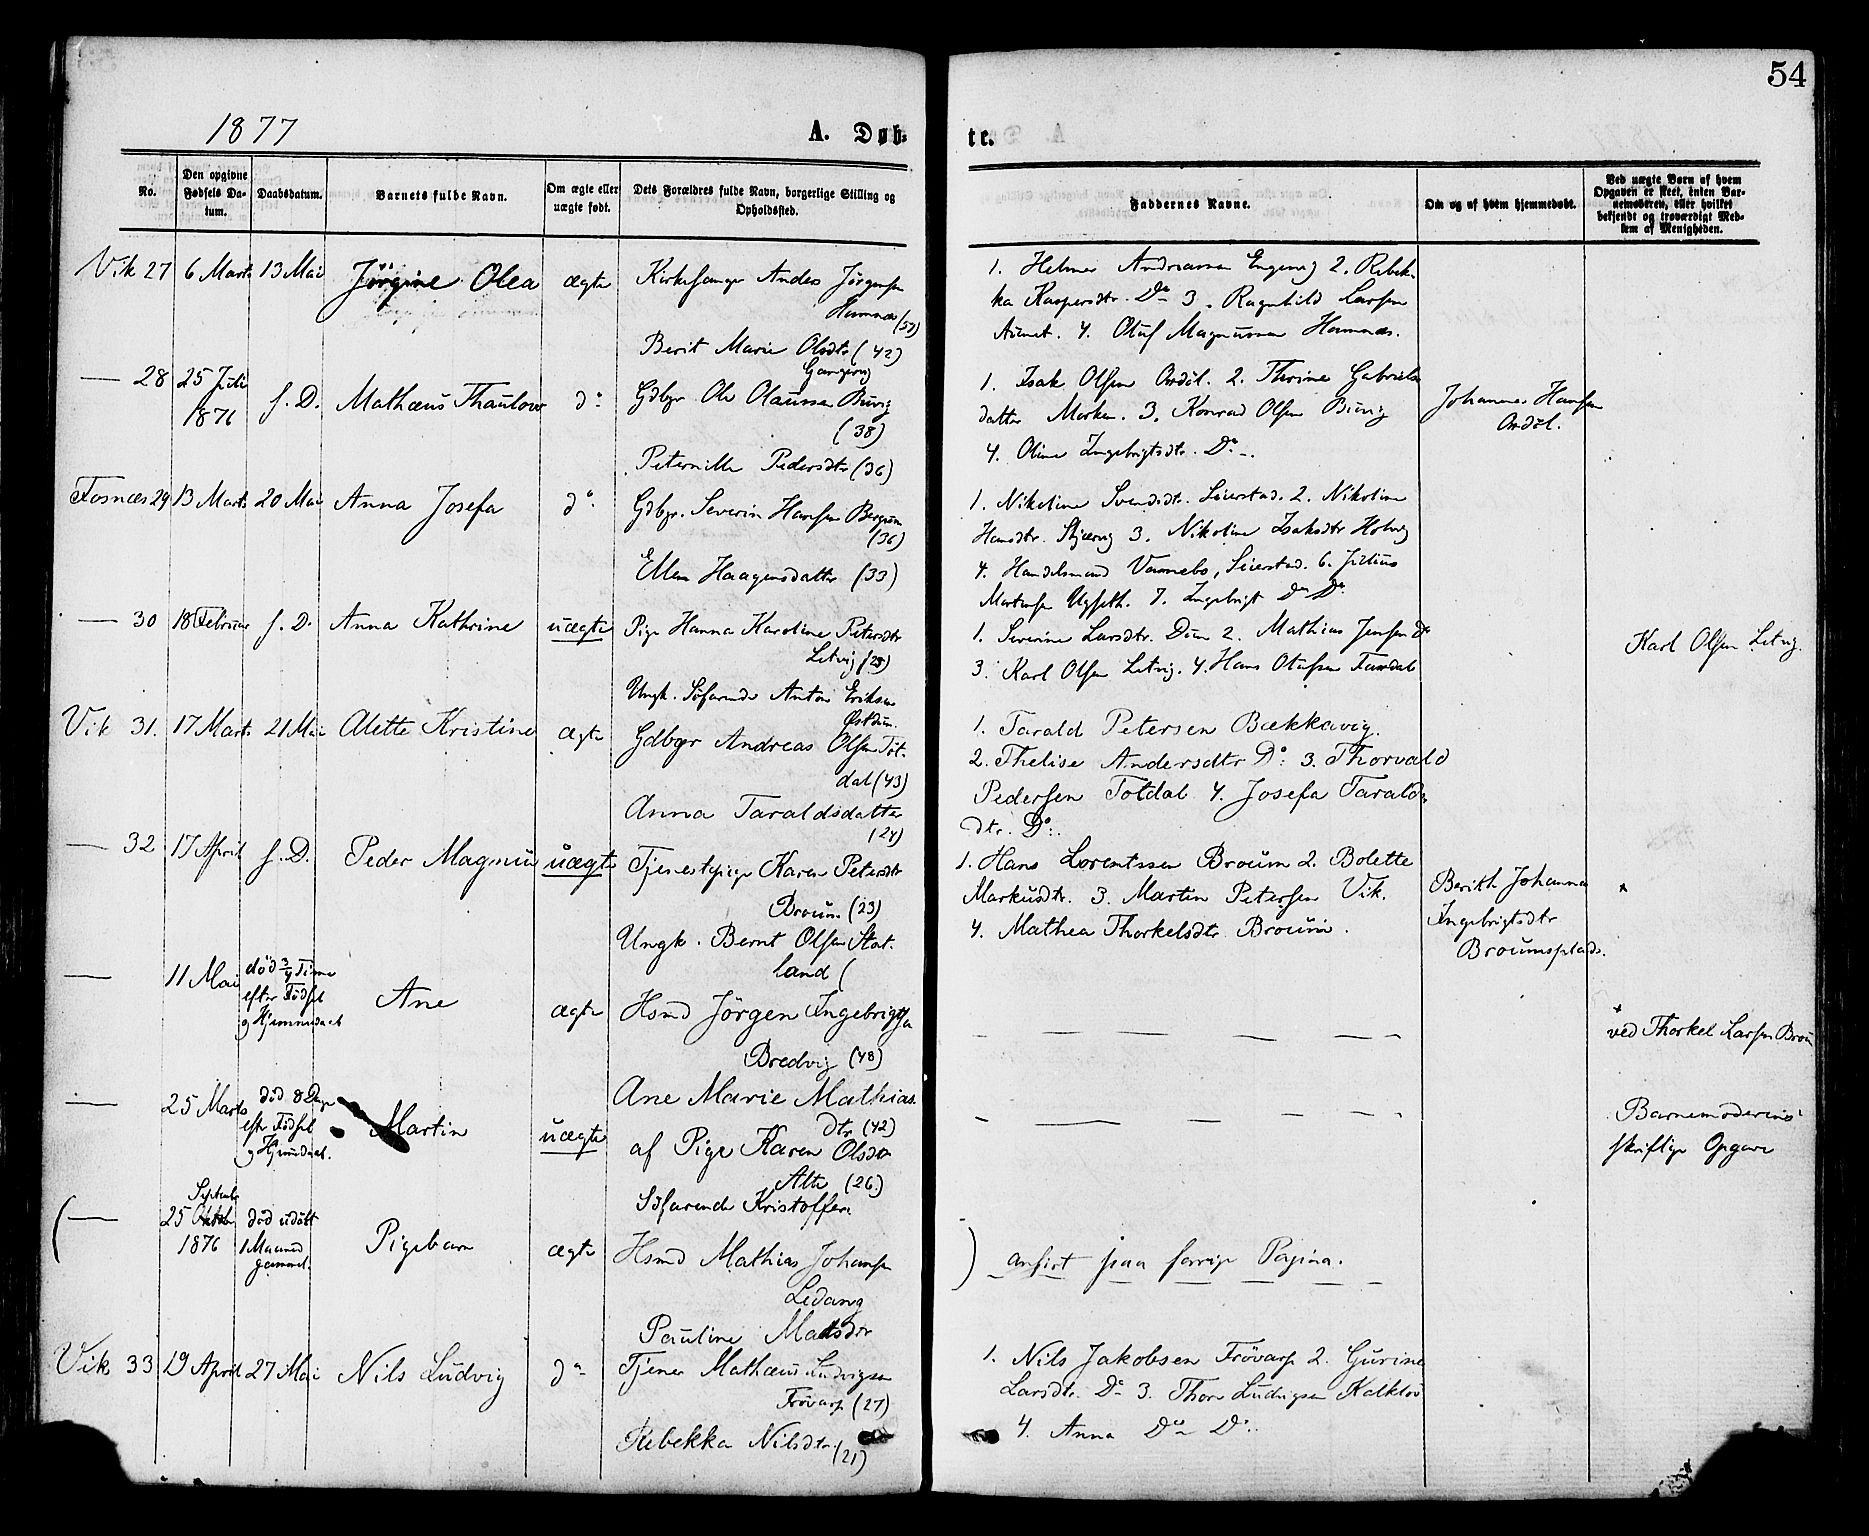 54
1877
A. Døb-
te.
No.
Den opgivne Fødsels Da-
tum.
Daabsdatum.
Barnets fulde Navn.
Om ægte eller
uægte født.
Dets Forældres fulde Navn, borgerlige Stilling og
Opholdssted.
Faddernes Navne.
Om og af hvem hjemmedøbt.
Ved uægte Børn af hvem
Opgaven er skeet, enten Bar-
nemoderen, eller hvilket
bekjendt og troværdigt Med-
lem af Menigheden.
Vik 27 6 Marts 13 Mai Jørgine Olea ægte Kirkesanger Anders Jørgensen
Hamnæs (57)
Berit Marie Olsdtr (42)
1. Helmer Andreassen Engenvig 2. Rebek-
ka Kaspersdtr. Do 3. Ragnhild Larsen
Aunet. 4. Oluf Magnussen Hamnæs.
— 28 25 Juli
1876 s. D. Mathæus Thaulow do Gdbgr Ole Olaussen Buvig
(38)
Peternille Pedersdtr (36)
1. Isak Olsen Ordøl. 2. Thrine Gabriels-
datter Morken. 3. Konrad Olsen Buvig
4. Oline Ingebrigtsdtr. Do.
Johannes Hansen
Ordøl.
Fosnæs 29 13 Marts 20 Mai Anna Josefa do Gdbgr. Severin Hansen Bragstun
(36)
Ellen Haagensdatter (33)
1. Nikoline Svendsdtr. Seierstad. 2. Nikoline
Hansdtr. Skjærvig 3. Nikoline Isaksdtr Holvig
4. Handelsmand Vannebo, Seierstad. 6. Julius
Martinsen Ugseth. 7. Ingebrigt Do Do
— 30 18 Februar s. D. Anna Kathrine uægte Pige Hanna Karoline Petersdtr
Letvig (23)
Ungk. Søfarende Anton Eriksen
1. Severine Larsdtr. Dun 2. Mathias Jensen Do
3. Karl Olsen Letvig. 4. Hans Olufsen Faxdal
Karl Olsen Letvig.
Vik 31. 17 Marts 21 Mai Alette Kristine ægte Gdbgr Andreas Olsen Tøt-
dal (43)
Anna Taraldsdatter
(24)
1. Tarald Petersen Bækkavig.
2. Thelise Andersdtr Do: 3. Thorvald
Pedersen Totdal 4. Josefa Taralds-
dtr. Do.
— 32 17 April s. D. Peder Magnus uægte Tjenestepige Karen Petersdtr
Broum. (23)
Ungk. Bernt Olsen Stat-
land (
1. Hans Lorentssen Broum 2. Bolette
Markusdtr. 3. Martin Petersen Vik.
4. Mathea Thorkelsdtr Broum.
Berith Johanna
Ingebrigtsdtr
Broumsplads.
ved Thorkel Larsen Broum
— 11 Mai død 3/4 Time
efter Fødsel
og Hjemmedaab Ane ægte Hsmd Jørgen Ingebrigtsen
Bredvig (48)
Ane Marie Mathias
dtr (42)
— 25 Marts død 8 Dage
eftr Fødsel
og Hjemmedaab. Martin uægte af Pige Karen Olsdtr
Alte (26)
Søfarende Kristoffer
Barnemoderens
skriftlige Opgave
( — September
25 Oktbr
1876 død udøbt
1 Maaned
gammel. Pigebarn ægte Hsmd Mathias Johansen
Ledang
Pauline Matsdtr
) anført paa forrige Pagina.
Vik 33 19 April 27 Mai Nils Ludvig do Tjener Mathæus Ludvigsen
Frøvarp (27)
Rebekka Nilsdtr (21)
1. Nils Jakobsen Frøvarp 2. Gurine
Larsdtr. Do 3. Thor Ludvigsen Kalkløv
4. Anna Do Do.